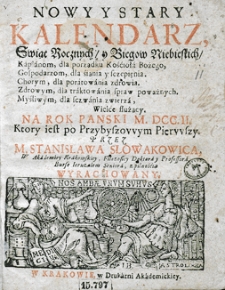 NOWY Y STARY
KALENDARZ,
Swiąt Rocznych / y Biegow Niebieskich /
Kapłanom, dla porządku Kośćioła Bożego,
Gospodarzom, dla siania y szczepienia.
Chorym, dla poratowania zdrowia.
Zdrowym, dla traktowania spraw poważnych.
Myśliwym, dla szcżwania zwierzá,
Wielce służący.
NA ROK PANSKI M. DCC. II.
Ktory iest po Przybyszowym Pierwszy.
PRZEZ
M. STANISŁAWA SŁOWAKOWICA,
W Akademiey Krakowskiey, Filozofiey Doktora y Professora,
Bursę Ieruzalem Seniora, z pilnością
WYRACHOWANY.
W KRAKOWIE, w Drukarni Akademickiey.
15.797